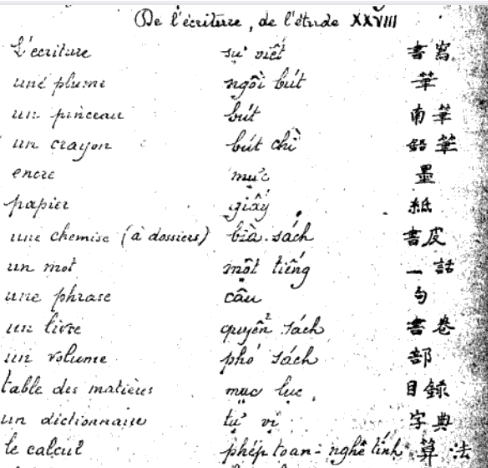 De l'écriture, de l'étude XXVIII
L'écriture sự viết 書寫
une plume ngòi bút 筆
un pinceau bút 南筆
un crayon bút chì 鉛筆
encre mực 墨
papier giấy 紙
une chemise (à dossiers) bìa sách 書皮
un mot một tiếng 一話
une phrase câu 句
un livre quyển sách 書卷
un volume phó sách 部
table des matières mục lục 目錄
un dictionnaire tự vị 字典
le calcul phép toan - nghề tính 算法